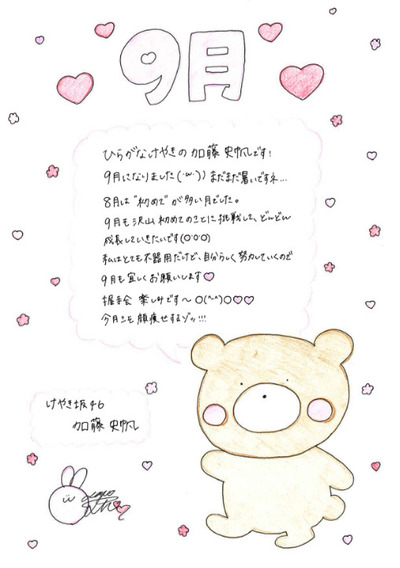 9月
ひらがなけやきの加藤史帆です!
9月になりました(·ω·)) まだまだ暑いですネ...
8月は"初めて"が多い月でした。
9月も沢山初めてのことに挑戦して、どんどん
成長していきたいです(○'○'○)
私はとても不器用だけど、自分らしく努力していくので
9月も宜しくお願いします♡
握手会 楽しみです〜 ○(^-^)○♡♡
今月こそ顔痩せするゾッ!!!
けやき坂46
加藤 史帆